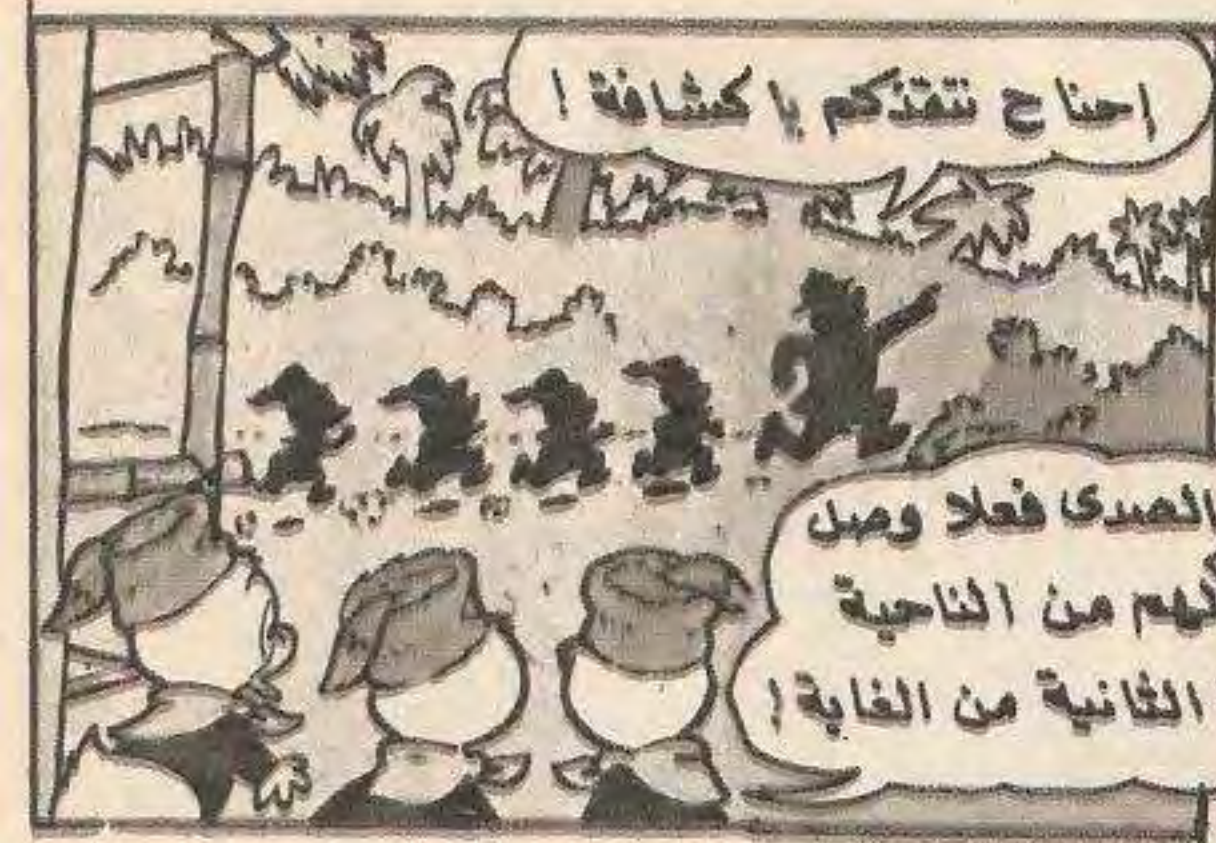 إحنا ح ننقذكم يا كشافة !
الصدى فعلا وصل
لهم من الناحية
الثانية من الغابة !